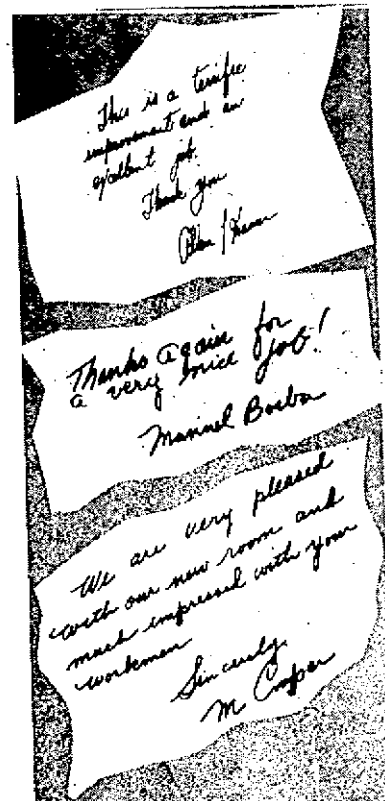 This is a terrific
improvement and an
excellent job.
Thank you
Thanks again for
a very nice job!
Manuel Borba
We are very pleased
with our new room and
much impressed with your
workmen
Sincerely,
M Cooper